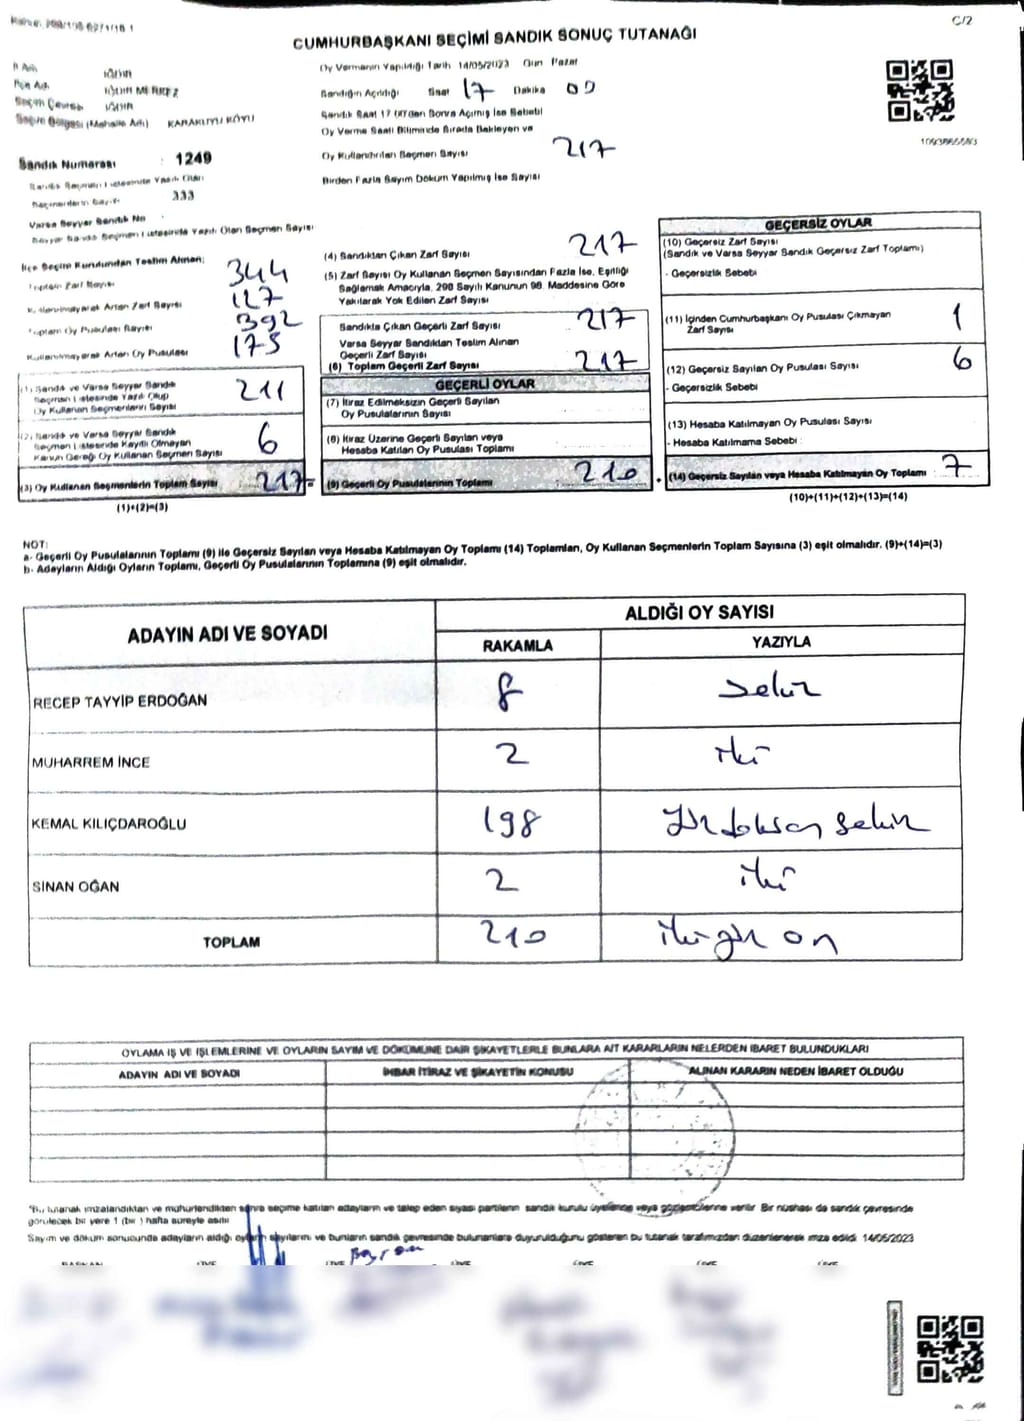 C/2
CUMHURBAŞKANI SEÇİMİ SANDIK SONUÇ TUTANAĞI
İl Adı IĞDIR
İlçe Adı IĞDIR MERKEZ
Seçim Çevresi IĞDIR
Seçim Bölgesi (Mahalle Adı) KARAKUYU KÖYU
Sandık Numarası : 1249
Sandık Seçmen Listesinde Yazılı Olan
Seçmenlerin Sayısı 333
Varsa Seyyar Sandık No
Seyyar Sandık Seçmen Listesinde Yazılı Olan Seçmen Sayısı
Oy Vermenin Yapıldığı Tarih 14/05/2023 Gün Pazar
Sandığın Açıldığı Saat 17 Dakika 00
Sandık Saat 17 00'den Sonra Açılmış İse Sebebi
Oy Verme Saati Bitiminde Sırada Bekleyen ve
Oy Kullandırılan Seçmen Sayısı 217
Birden Fazla Sayım Döküm Yapılmış İse Sayısı
İlçe Seçim Kurulundan Teslim Alınan;
Toplam Zarf Sayısı 344
Kullanılmayarak Artan Zarf Sayısı 127
Toplam Oy Pusulası Sayısı 392
Kullanılmayarak Artan Oy Pusulası 175
(1) Sandık ve Varsa Seyyar Sandık
Seçmen Listesinde Yazılı Olup
Oy Kullanan Seçmenlerin Sayısı 211
(2) Sandık ve Varsa Seyyar Sandık
Seçmen Listesinde Kayıtlı Olmayan
Kanun Gereği Oy Kullanan Seçmen Sayısı 6
(3) Oy Kullanan Seçmenlerin Toplam Sayısı 217=
(1)+(2)=(3)
(4) Sandıktan Çıkan Zarf Sayısı 217
(5) Zarf Sayısı Oy Kullanan Seçmen Sayısından Fazla İse, Eşitliği
Sağlamak Amacıyla, 298 Sayılı Kanunun 98. Maddesine Göre
Yakılarak Yok Edilen Zarf Sayısı
Sandıkta Çıkan Geçerli Zarf Sayısı 217
Varsa Seyyar Sandıktan Teslim Alınan
Geçerli Zarf Sayısı
(6) Toplam Geçerli Zarf Sayısı 217
GEÇERLİ OYLAR
(7) İtiraz Edilmeksizin Geçerli Sayılan
Oy Pusulalarının Sayısı
(8) İtiraz Üzerine Geçerli Sayılan veya
Hesaba Katılan Oy Pusulası Toplamı
(9) Geçerli Oy Pusulalarının Toplamı 210
GEÇERSİZ OYLAR
(10) Geçersiz Zarf Sayısı
(Sandık ve Varsa Seyyar Sandık Geçersiz Zarf Toplamı)
- Geçersizlik Sebebi
(11) İçinden Cumhurbaşkanı Oy Pusulası Çıkmayan
Zarf Sayısı 1
(12) Geçersiz Sayılan Oy Pusulası Sayısı 6
- Geçersizlik Sebebi
(13) Hesaba Katılmayan Oy Pusulası Sayısı
- Hesaba Katılmama Sebebi :
(14) Geçersiz Sayılan veya Hesaba Katılmayan Oy Toplamı 7
(10)+(11)+(12)+(13)=(14)
NOT:
a- Geçerli Oy Pusulalarının Toplamı (9) ile Geçersiz Sayılan veya Hesaba Katılmayan Oy Toplamı (14) Toplamları, Oy Kullanan Seçmenlerin Toplam Sayısına (3) eşit olmalıdır. (9)+(14)=(3)
b- Adayların Aldığı Oyların Toplamı, Geçerli Oy Pusulalarının Toplamına (9) eşit olmalıdır.
ADAYIN ADI VE SOYADI ALDIĞI OY SAYISI
RAKAMLA YAZIYLA
RECEP TAYYİP ERDOĞAN 8 sekiz
MUHARREM İNCE 2 iki
KEMAL KILIÇDAROĞLU 198 Yüzdoksan sekiz
SİNAN OĞAN 2 iki
TOPLAM 210 ikiyüz on
OYLAMA İŞ VE İŞLEMLERİNE VE OYLARIN SAYIM VE DÖKÜMÜNE DAİR ŞİKAYETLERLE BUNLARA AİT KARARLARIN NELERDEN İBARET BULUNDUKLARI
ADAYIN ADI VE SOYADI İHBAR İTİRAZ VE ŞİKAYETİN KONUSU ALINAN KARARIN NEDEN İBARET OLDUĞU
*Bu tutanak imzalandıktan ve mühürlendikten sonra seçime katılan adayların ve talep eden siyasi partilerin sandık kurulu üyelerine veya gözlemcilerine verilir. Bir nüshası da sandık çevresinde
görülecek bir yere 1 (bir) hafta süreyle asılır
Sayım ve döküm sonucunda adayların aldığı oyların sayılarını ve bunların sandık çevresinde bulunanlara duyurulduğunu gösteren bu tutanak tarafımızdan düzenlenerek imza edildi. 14/05/2023